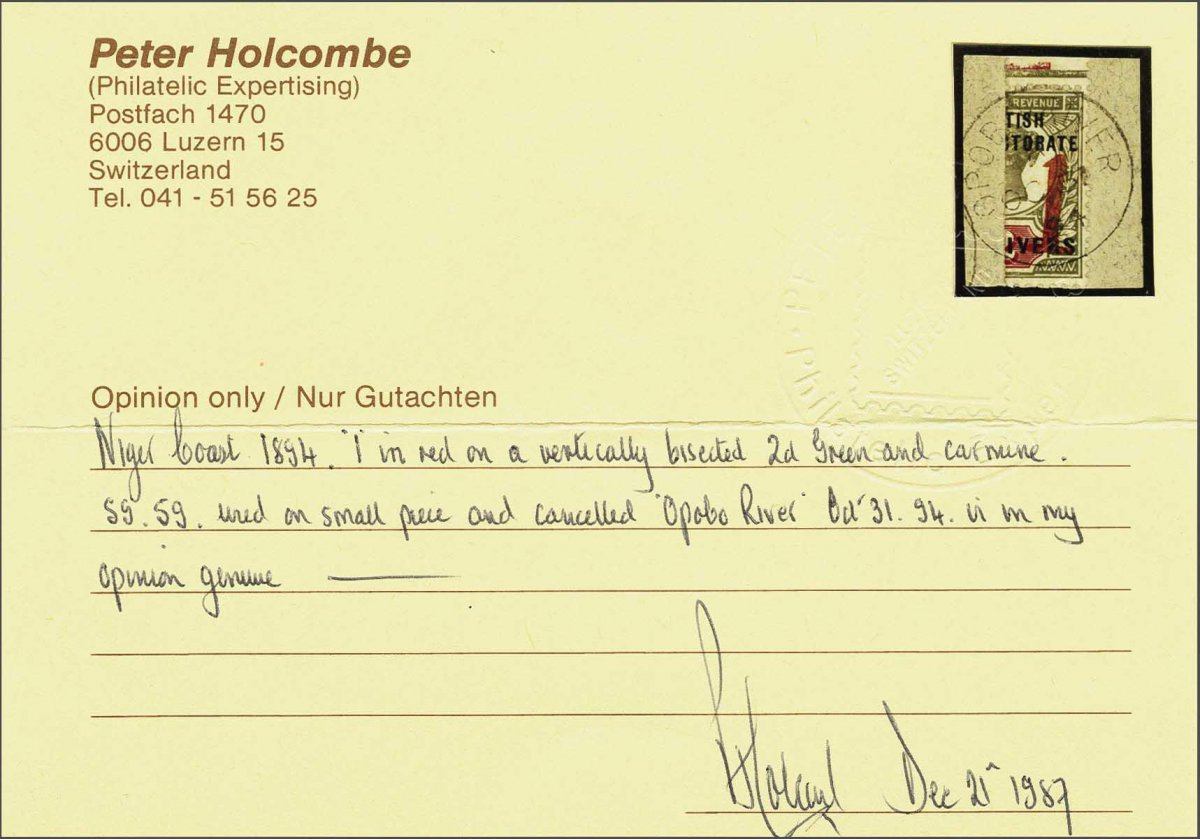 Peter Holcombe
(Philatelic Expertising)
Postfach 1470
6006 Luzern 15
Switzerland
Tel. 041 - 51 56 25
REVENUE
TISH
TORATE
IVERS
Opinion only / Nur Gutachten
Niger Coast 1894. '1' in red on a vertically bisected 2d Green and carmine.
SG. 59. used on small piece and cancelled 'Opobo River' Oct 31. 94. is in my
opinion genuine
Dec 21 1987